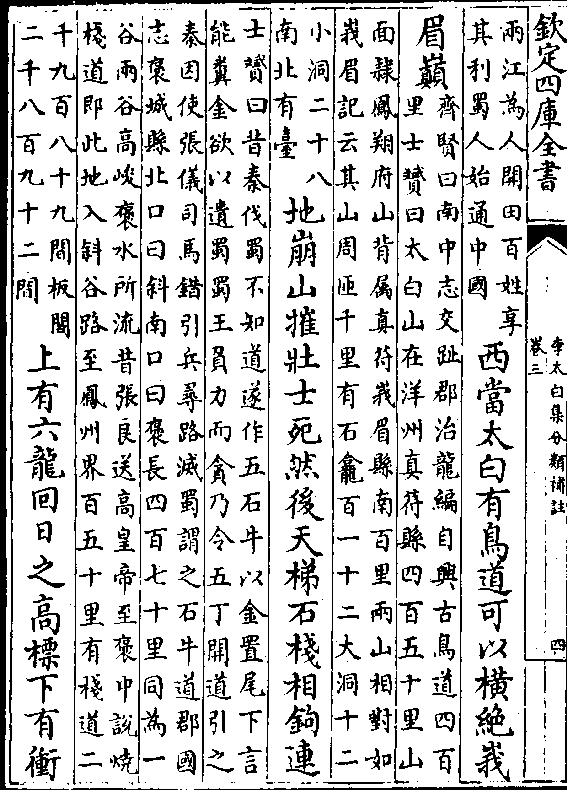 欽定四庫全書
李太白集分類補註
卷三
四
兩江為人開田百姓享
其利蜀人始通中國
西當太白有鳥道可以橫絶峩
眉巔
齊賢曰南中志交趾郡治龍編自興古鳥道四百
里士贇曰太白山在洋州真符縣四百五十里山
面隸鳳翔府山背属真符峩眉縣南百里兩山相對如
峩眉記云其山周匝千里有石龕百一十二大洞十二
小洞二十八
南北有臺
地崩山摧壯士死然後天梯石棧相鉤連
士贇曰昔秦伐蜀不知道遂作五石牛以金置尾下言
能糞金欲以遺蜀蜀王負力而貪乃令五丁開道引之
秦因使張儀司馬錯引兵尋路滅蜀謂之石牛道郡國
志褒城縣北口曰斜南口曰褒長四百七十里同為一
谷兩谷高峻褒水所流昔張良送高皇帝至褒中說燒
棧道即此地入斜谷路至鳳州界百五十里有棧道二
千九百八十九間板閣
二千八百九十二間
上有六龍回日之高標下有衝